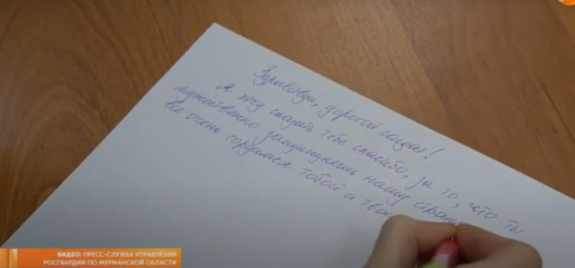 Здравствуй, дорогой солдат!
Я хочу сказать тебе спасибо, за то, что ты
мужественно защищаешь нашу стран
Все очень гордимся тобой и тво
ВИДЕО: ПРЕСС-СЛУЖБА УПРАВЛЕНИЯ
РОСГВАРДИИ ПО МУРМАНСКОЙ ОБЛАСТИ